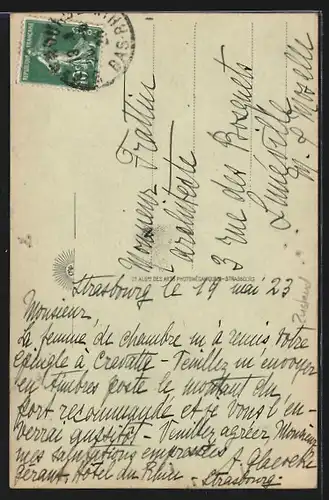 Monsieur Frattin
architecte
3 rue des Bosquets
Lunéville
M. & Moselle
Strasbourg le 19 mai 23
Monsieur
La femme de chambre m'a remis votre
épingle à Cravatte - Veuillez m'envoyer
en timbres poste le montant du
port recommandé et je vous l'en-
verrai aussitôt - Veuillez agréer Monsieur
mes salutations empressées
gérant Hôtel du Rhin - Strasbourg -